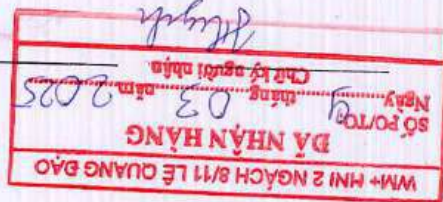 WM+ HNI 2 NGÁCH 8/11 LÊ QUANG ĐẠO
ĐÃ NHẬN HÀNG
SỐ PO/TO:
Ngày 9 tháng 03 năm 2025
Chữ ký người nhận
Huynh